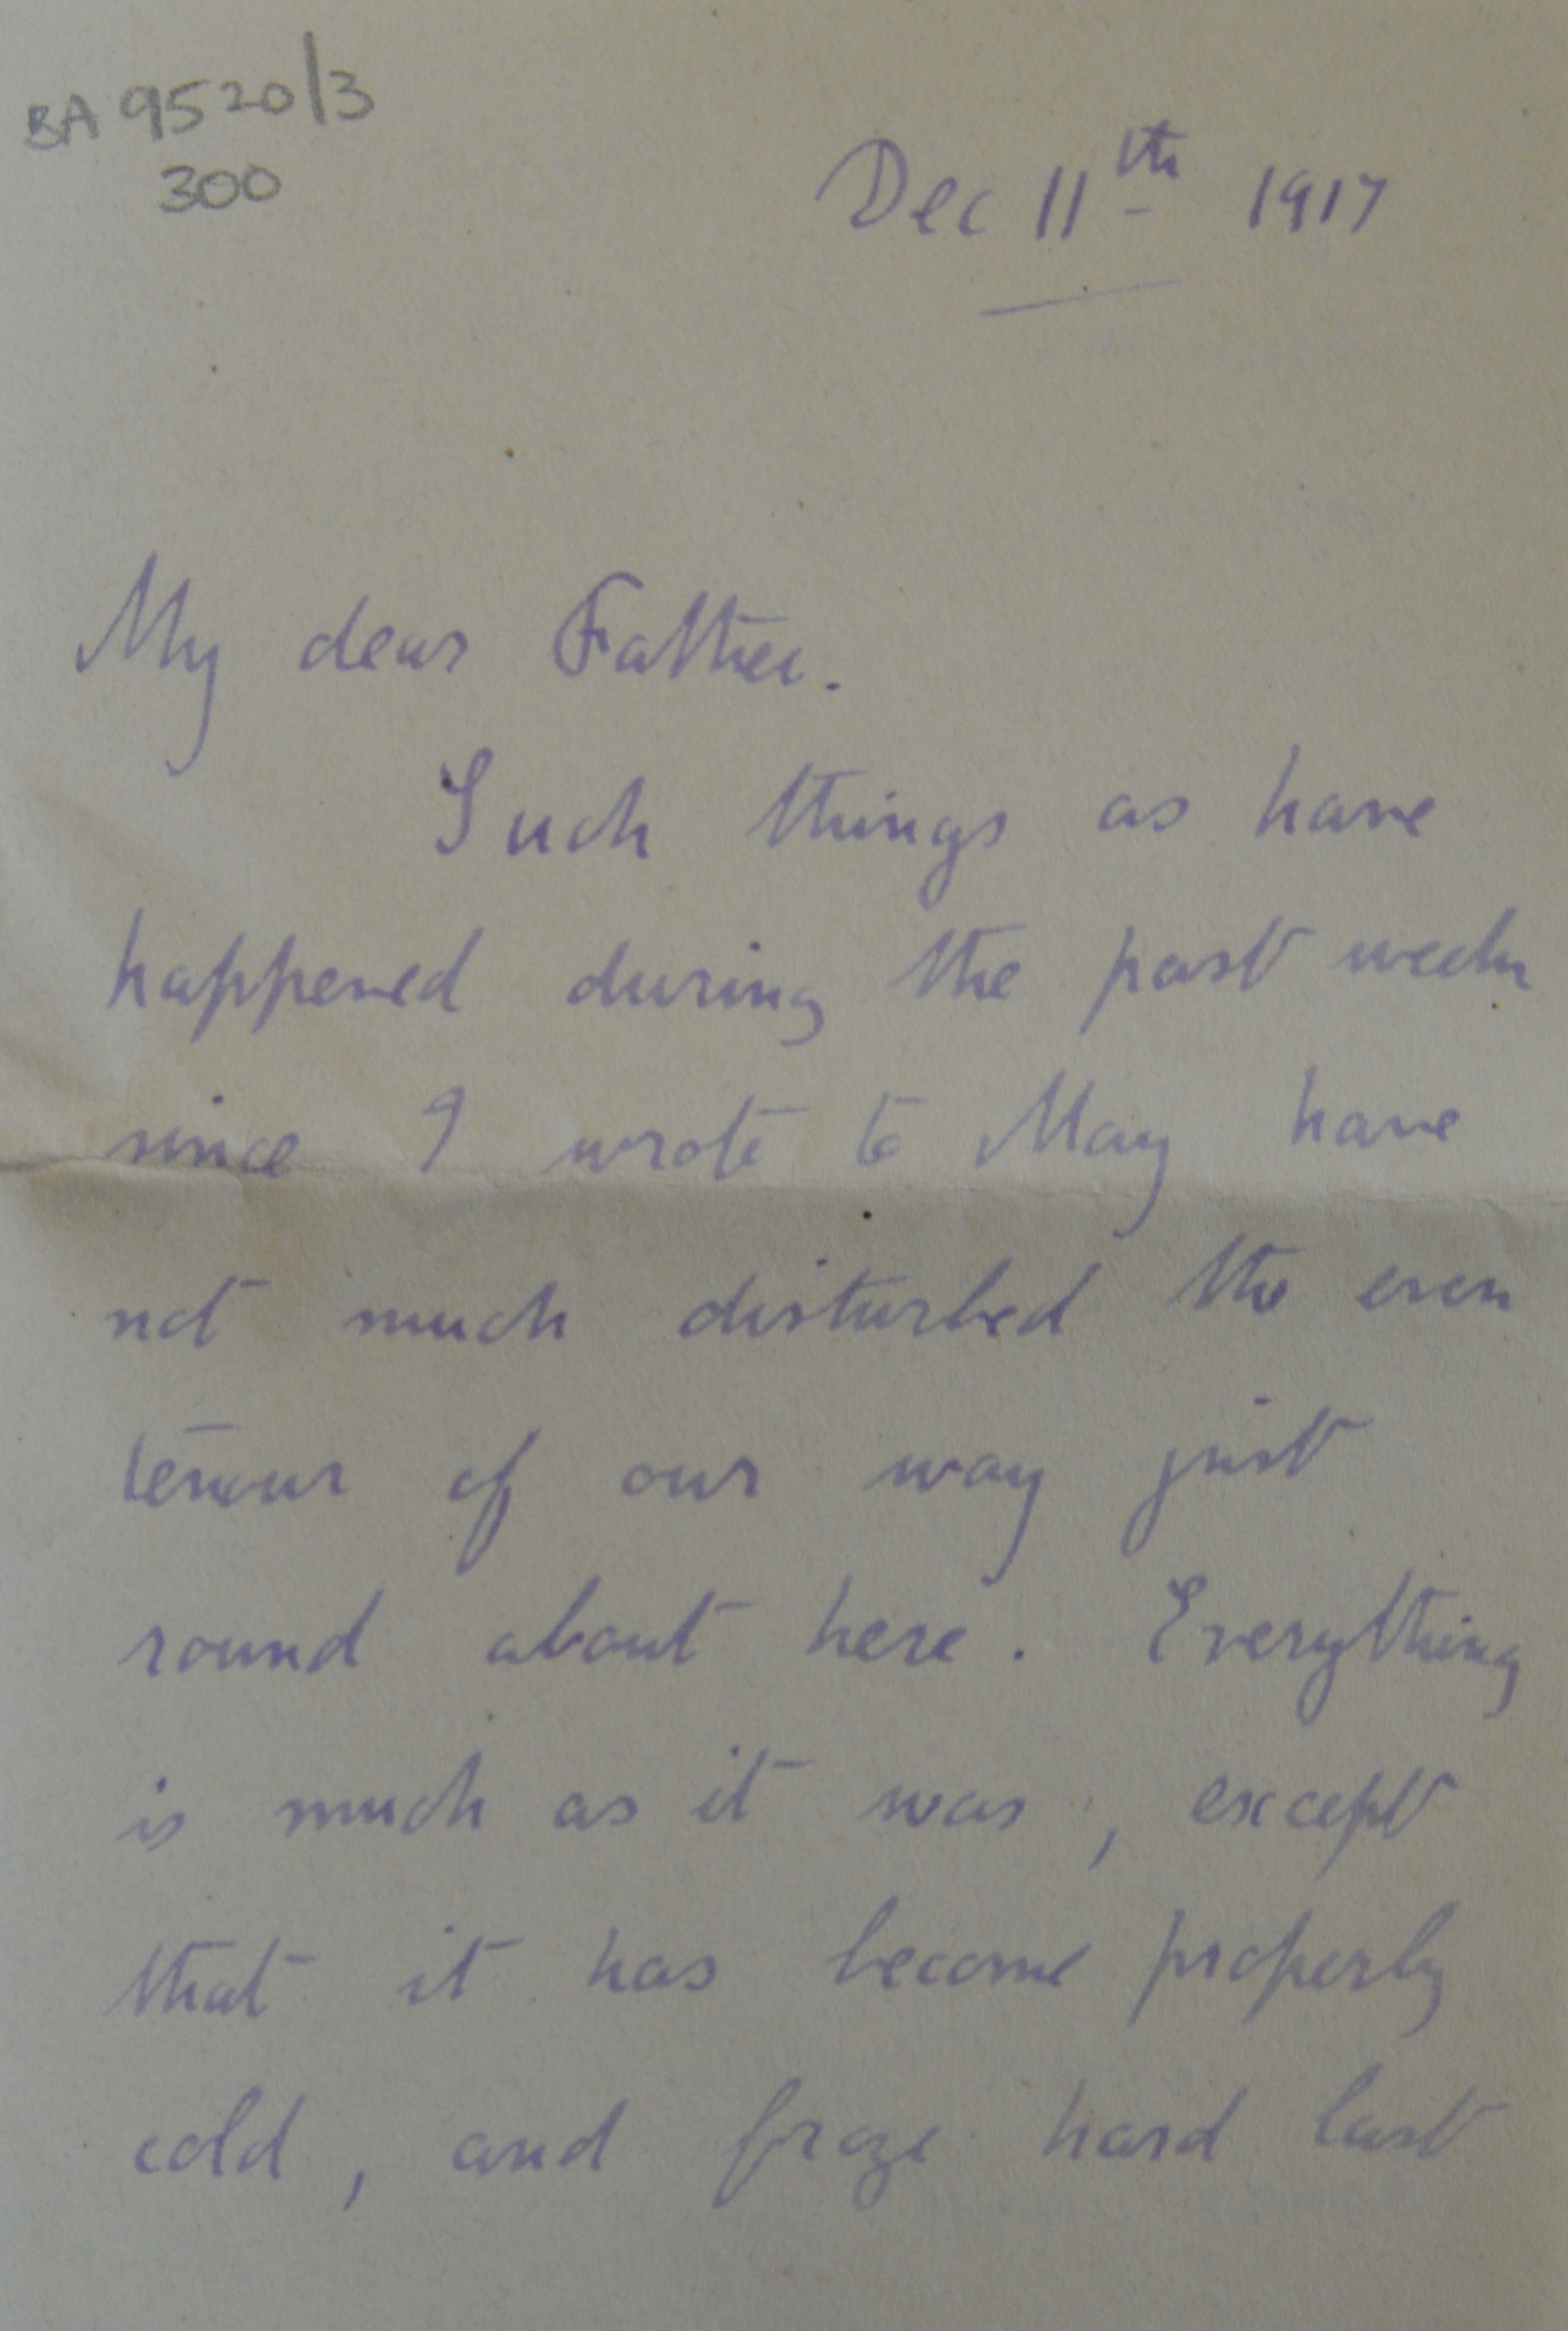 BA 9520/3
300
Dec 11th 1917
My dear Father.
Such things as have
happened during the past week
since I wrote to May have
not much disturbed the even
tenour of our way just
round about here. Everything
is much as it was, except
that it has become properly
cold, and froze hard last